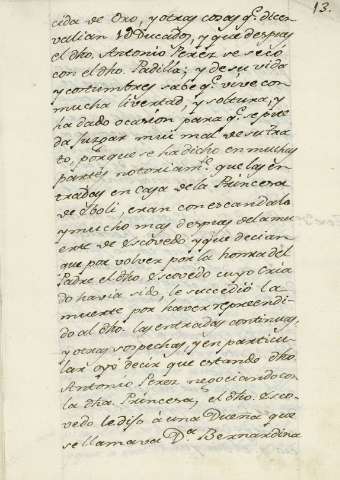 13.
cida de Oro, y otras cosas q.e dicen
valian 1D Ducados, y que despues
el dho. Antonio Perez se secó
con el dho. Padilla; y de su vida
y costumbres sabe q.e vive con
mucha livertad, y soltura, y
ha dado ocasion para q.e se pue
da Juzgar mui mal de su tra
to, porque se ha dicho en muchas
partes notoriam.te que las en
tradas en casa de la Princesa
de Eboli, eran con escandalo
y mucho mas despues de la mu
erte de Escovedo y que decian
que por volver por la honra del
Padre el dho. Escovedo cuyo Cria
do havia sido, le succedió la
muerte por haver reprendi
do al dho. las entradas continuas,
y otras sospechas, y en particu
lar oyó decir que estando dho.
Antonio Perez negociando con
la dha. Princesa, el dho. Esco
vedo le dijo à una Dueña que
se llamava D.a Bernardina